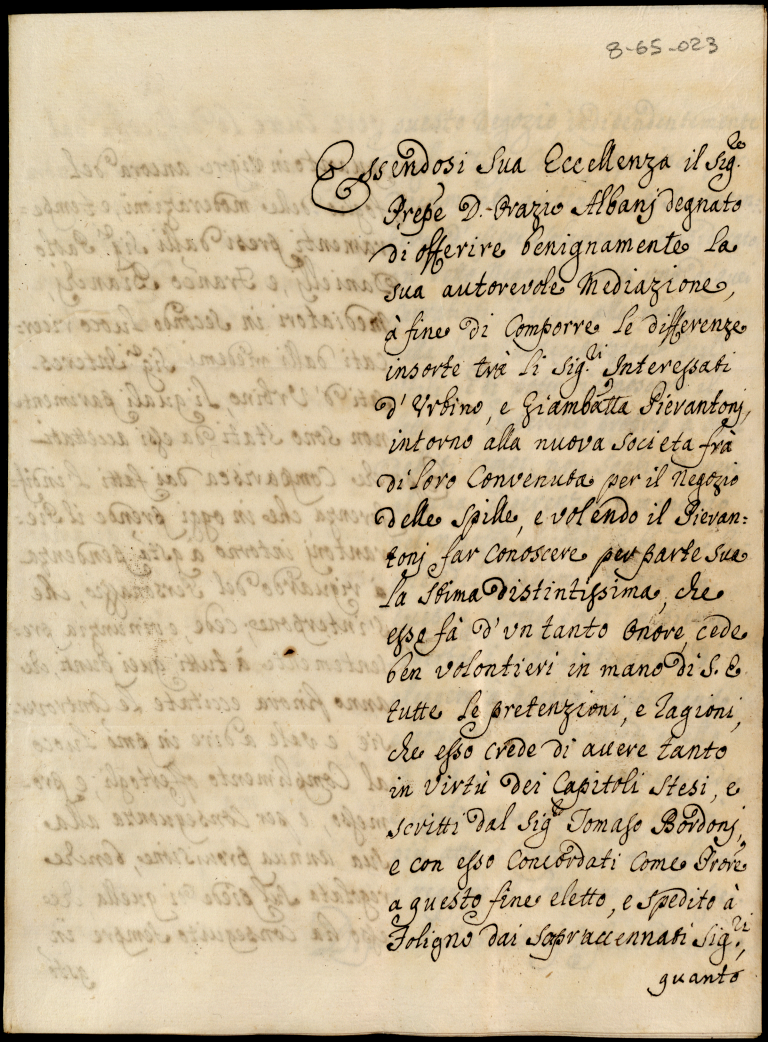 8-65-023
Essendosi Sua Eccellenza il Sig.re
Prēpe D. Orazio Albanj degnato
di offerire benignamente la
sua autorevole Mediazione,
à fine di Comporre le differenze
insorte trà li Sig.ri Interessati
d'Urbino, e Giambatta Pierantonj,
intorno alla nuova Societa frà
di loro Convenuta per il Negozio
delle Spille, e volendo il Pieran=
tonj far Conoscere per parte Sua
la Stima distintissima, che
esso fà d'un tanto Onore, cede
ben volontieri in mano di S. E.
tutte le pretenzioni, e ragioni,
che esso Crede di avere tanto
in Virtù dei Capitoli Stesi, e
scritti dal Sig.r Tomaso Bordonj,
e con esso Concordati Come Prore
a questo fine eletto, e Spedito à
Foligno dai Sopraccennati Sig.ri,
quanto